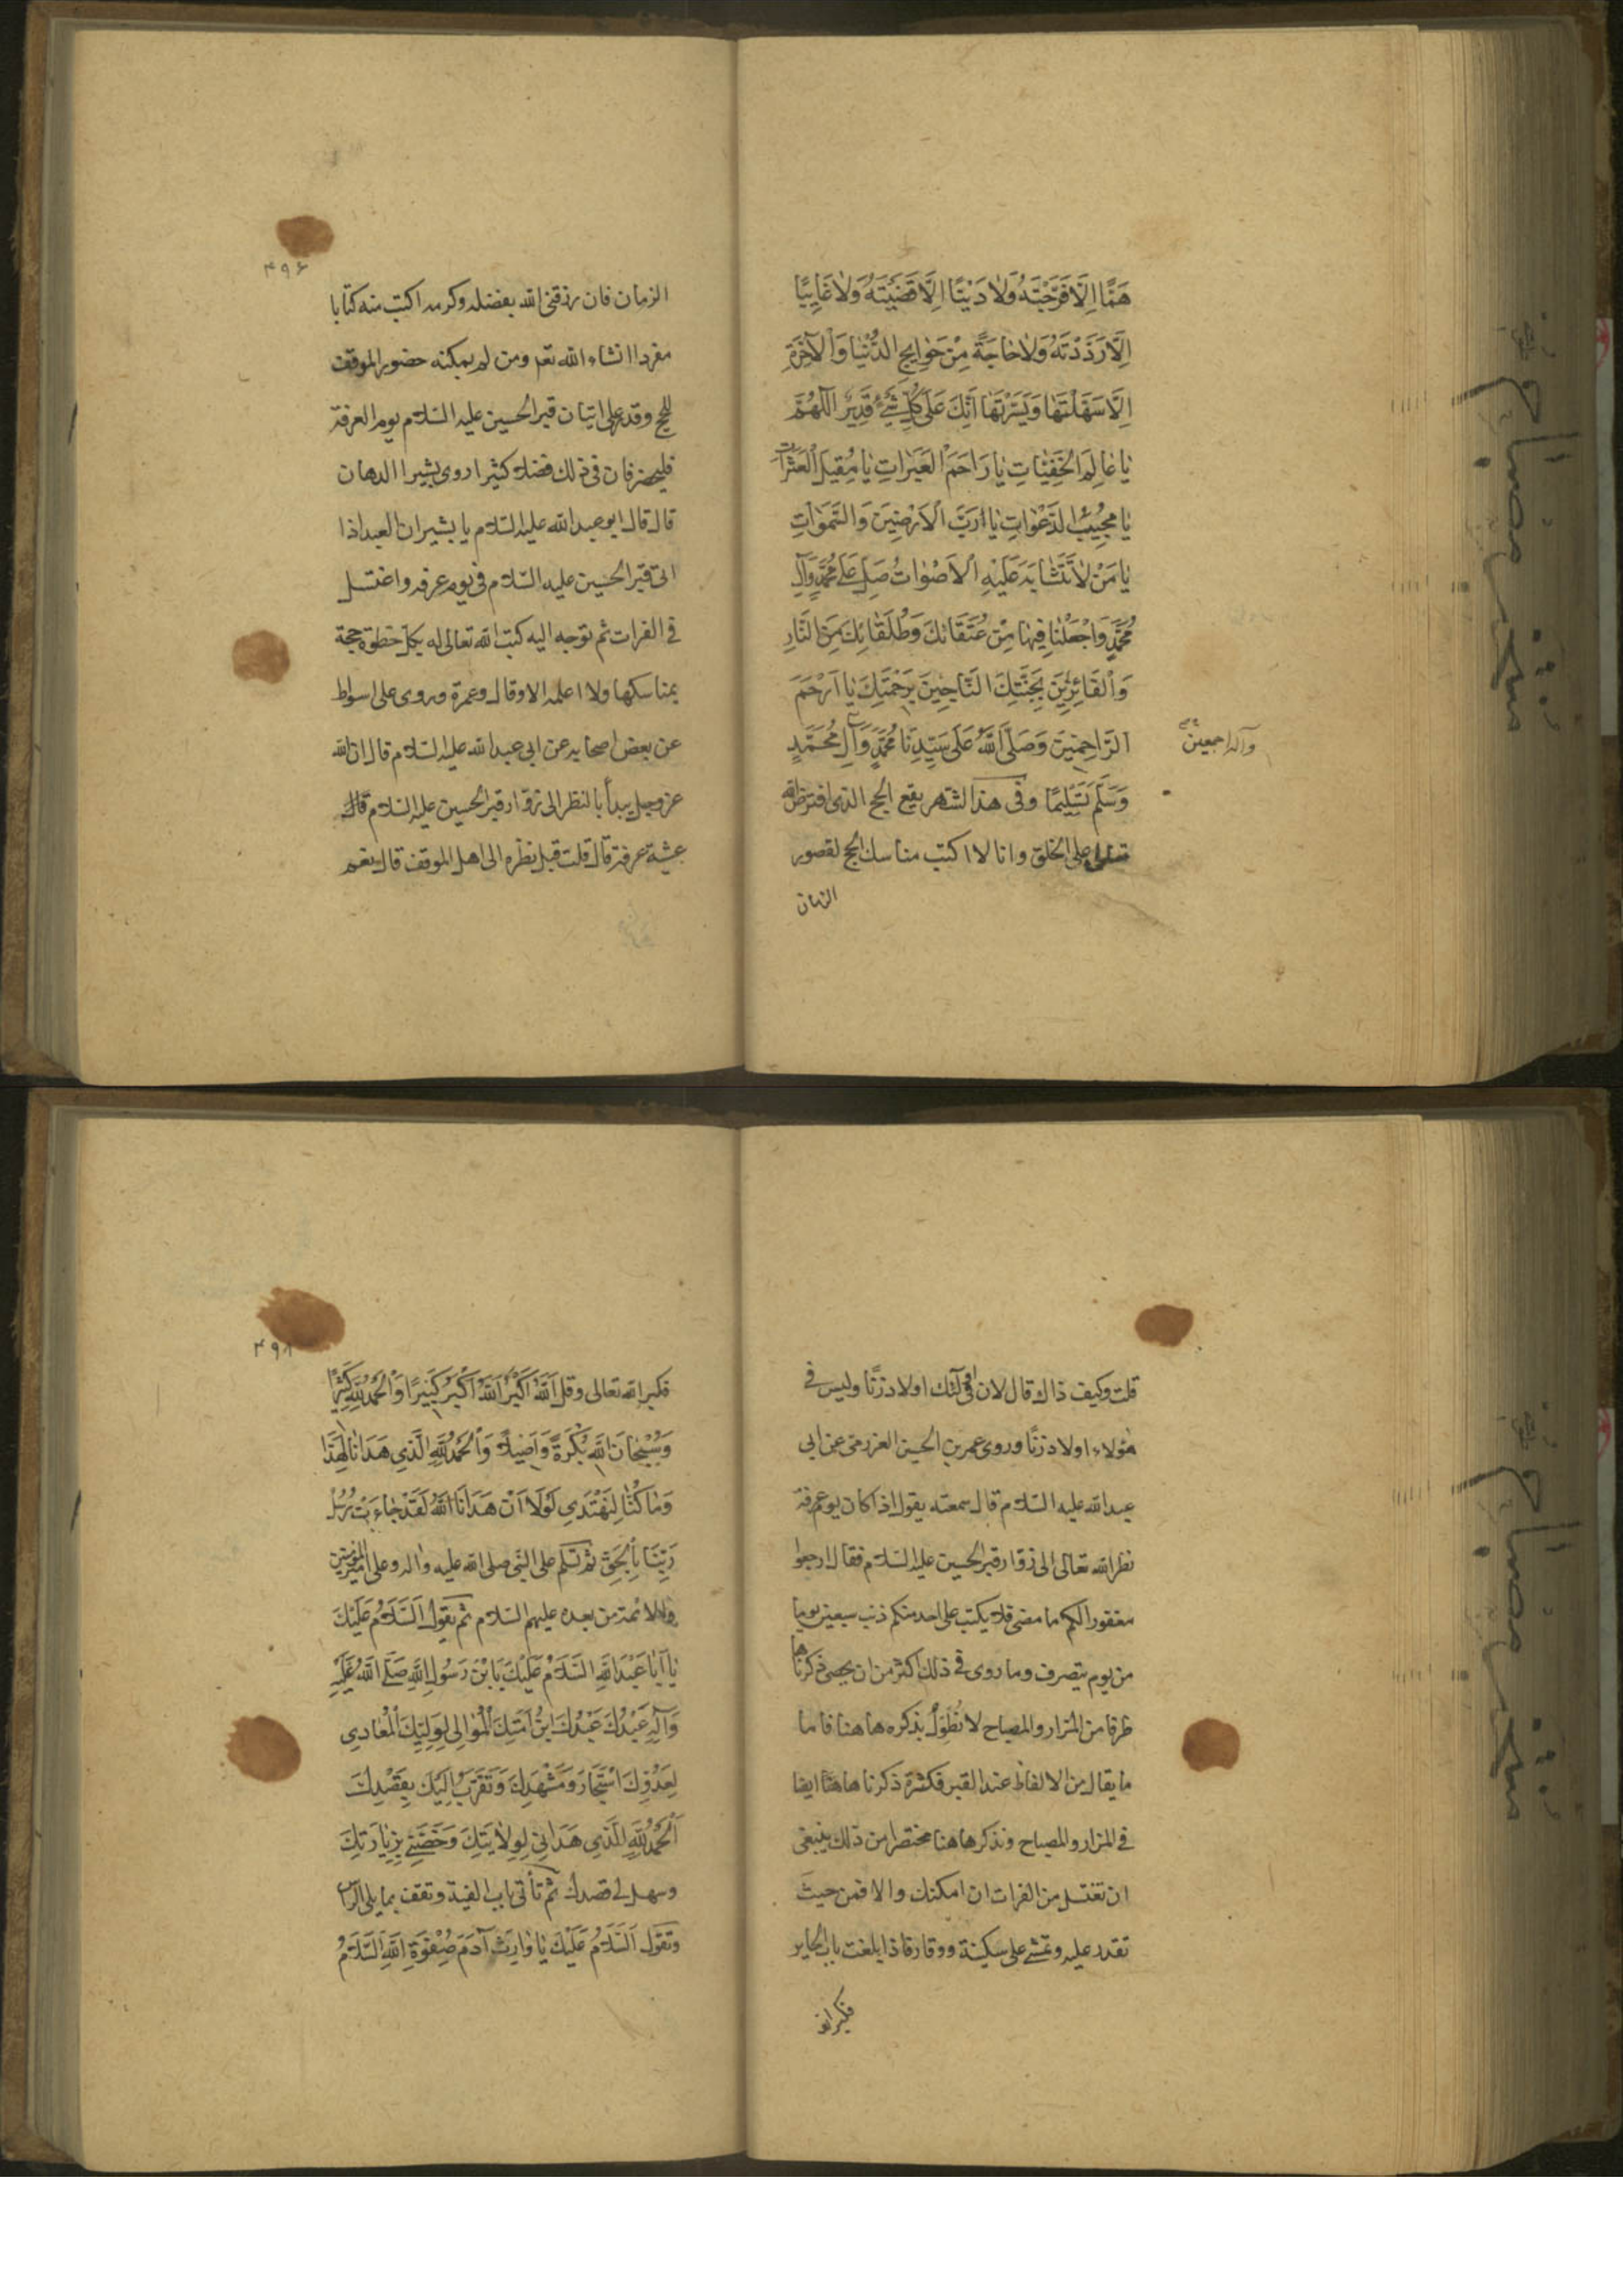 هَمًّا اِلَّا فَرَّجْتَهُ وَلَا دَيْنًا اِلَّا قَضَيْتَهُ وَلَا غَايِبًا
اِلَّا رَدَدْتَهُ وَلَا حَاجَةً مِنْ حَوَايِجِ الدُّنْيَا وَالْآخِرَةِ
اِلَّا سَهَّلْتَهَا وَيَسَّرْتَهَا اِنَّكَ عَلَى كُلِّ شَيْءٍ قَدِيرٌ اَللّٰهُمَّ
يَا عَالِمَ الْخَفِيَّاتِ يَا رَاحِمَ الْعَبَرَاتِ يَا مُقِيلَ الْعَثَرَاتِ
يَا مُجِيبَ الدَّعَوَاتِ يَا رَبَّ الْاَرَضِينَ وَالسَّمَوَاتِ
يَا مَنْ لَا تَتَشَابَهُ عَلَيْهِ الْاَصْوَاتُ صَلِّ عَلَى مُحَمَّدٍ وَآلِ
مُحَمَّدٍ وَاجْعَلْنَا فِيهَا مِنْ عُتَقَائِكَ وَطُلَقَائِكَ مِنَ النَّارِ
وَالْفَائِزِينَ بِجَنَّتِكَ النَّاجِينَ بِرَحْمَتِكَ يَا اَرْحَمَ
الرَّاحِمِينَ وَصَلَّى اللّٰهُ عَلَى سَيِّدِنَا مُحَمَّدٍ وَآلِ مُحَمَّدٍ
وآله اجمعين
وَسَلَّمَ تَسْلِيمًا وفى هذا الشهر يقع الحج الذى افترض الله
تعالى على الخلق وانا لا اكتب مناسك الحج لقصور
الزمان
۴۹۶
الزمان فان رزقنى الله بفضله وكرمه اكتب منه كتابا
مفردا انشاء الله تعم ومن لم يمكنه حضور الموقف
للحج وقدر على اتيان قبر الحسين عليه السلام يوم العرفة
فليحضر فان فى ذلك فضلا كثيرا روى بشير الدهان
قال قال ابو عبد الله عليه السلام يا بشير ان العبد اذا
اتى قبر الحسين عليه السلام فى يوم عرفه واغتسل
فى الفرات ثم توجه اليه كتب الله تعالى له بكل خطوة حجة
بمناسكها ولا اعلمه الا وقال وعمرة وروى على اسواط
عن بعض اصحابه عن ابى عبد الله عليه السلام قال ان الله
عز وجل يبدأ بالنظر الى زوار قبر الحسين عليه السلام قال
عشية عرفة قال قلت قبل نظره الى اهل الموقف قال نعم
قلت وكيف ذاك قال لان فى اولئك اولاد زنا وليس فى
هؤلاء اولاد زنا وروى عمر بن الحسن العزرمى عن ابى
عبد الله عليه السلام قال سمعته يقول اذا كان يوم عرفة
نظر الله تعالى الى زوار قبر الحسين عليه السلام فقال ارجعوا
مغفورا لكم ما مضى فلا يكتب على احد منكم ذنب سبعين يوما
من يوم ينصرف وما روى فى ذلك اكثر من ان يحصى ذكرناها
طرفا من المزار والمصباح لا نُطَوِّلُ بذكره هاهنا فاما
ما يقال من الالفاظ عند القبر فكثرة ذكرناها هنا ايضا
فى المزار والمصباح ونذكر هاهنا مختصرا من ذلك ينبغى
ان تغتسل من الفرات ان امكنك والا فمن حيث
تقدر عليه وتمشى على سكينة ووقار فاذا بلغت باب الحاير
فكبر الله
۴۹۸
فكبر الله تعالى وقل اَللّٰهُ اَكْبَرُ اَللّٰهُ اَكْبَرُ كَبِيرًا وَالْحَمْدُ لِلّٰهِ كَثِيرًا
وَسُبْحَانَ اللّٰهِ بُكْرَةً وَاَصِيلًا وَالْحَمْدُ لِلّٰهِ الَّذِي هَدَانَا لِهَذَا
وَمَا كُنَّا لِنَهْتَدِيَ لَوْلَا اَنْ هَدَانَا اللّٰهُ لَقَدْ جَاءَتْ رُسُلُ
رَبِّنَا بِالْحَقِّ ثم تسلم على النبى صلى الله عليه واله وعلى اميرالمؤمنين
والائمة من بعده عليهم السلام ثم يَقُولُ اَلسَّلَامُ عَلَيْكَ
يَا اَبَا عَبْدِ اللّٰهِ السَّلَامُ عَلَيْكَ يَا بْنَ رَسُولِ اللّٰهِ صَلَّى اللّٰهُ عَلَيْهِ
وَآلِهِ عَبْدُكَ عَبْدُكَ ابْنُ اَمَتِكَ الْمُوَالِي لِوَلِيِّكَ الْمُعَادِي
لِعَدُوِّكَ اسْتَجَارَ وَمَشْهَدِكَ وَتَقَرَّبَ اِلَيْكَ بِقَصْدِكَ
اَلْحَمْدُ لِلّٰهِ الَّذِي هَدَانِي لِوِلَايَتِكَ وَخَصَّنِي بِزِيَارَتِكَ
وسهل لى قصدك ثم تأتى باب القبة وتقف بما يلى الراس
وتقول اَلسَّلَامُ عَلَيْكَ يَا وَارِثَ آدَمَ صِفْوَةِ اللّٰهِ السَّلَامُ